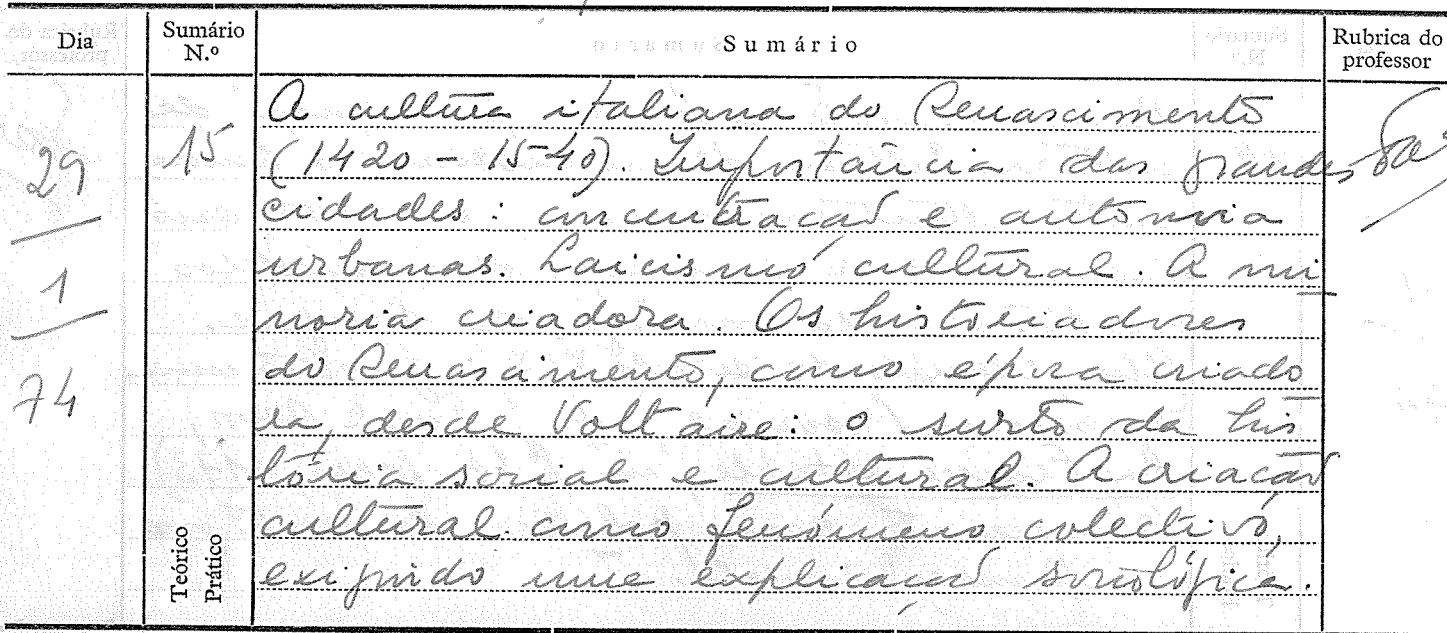 Dia
Sumário N.º
Sumário
Rubrica do professor
29
1
74
15
A cultura italiana do Renascimento
(1420 - 1540). Importância das grandes
cidades: concentração e autonomia
urbanas. Laicismo cultural. A mi
noria criadora. Os historiadores
do Renascimento, como época criado
ra, desde Voltaire: o surto da his
tória social e cultural. A criação
cultural como fenómeno colectivo,
exigindo uma explicação sociológica.
Teórico
Prático